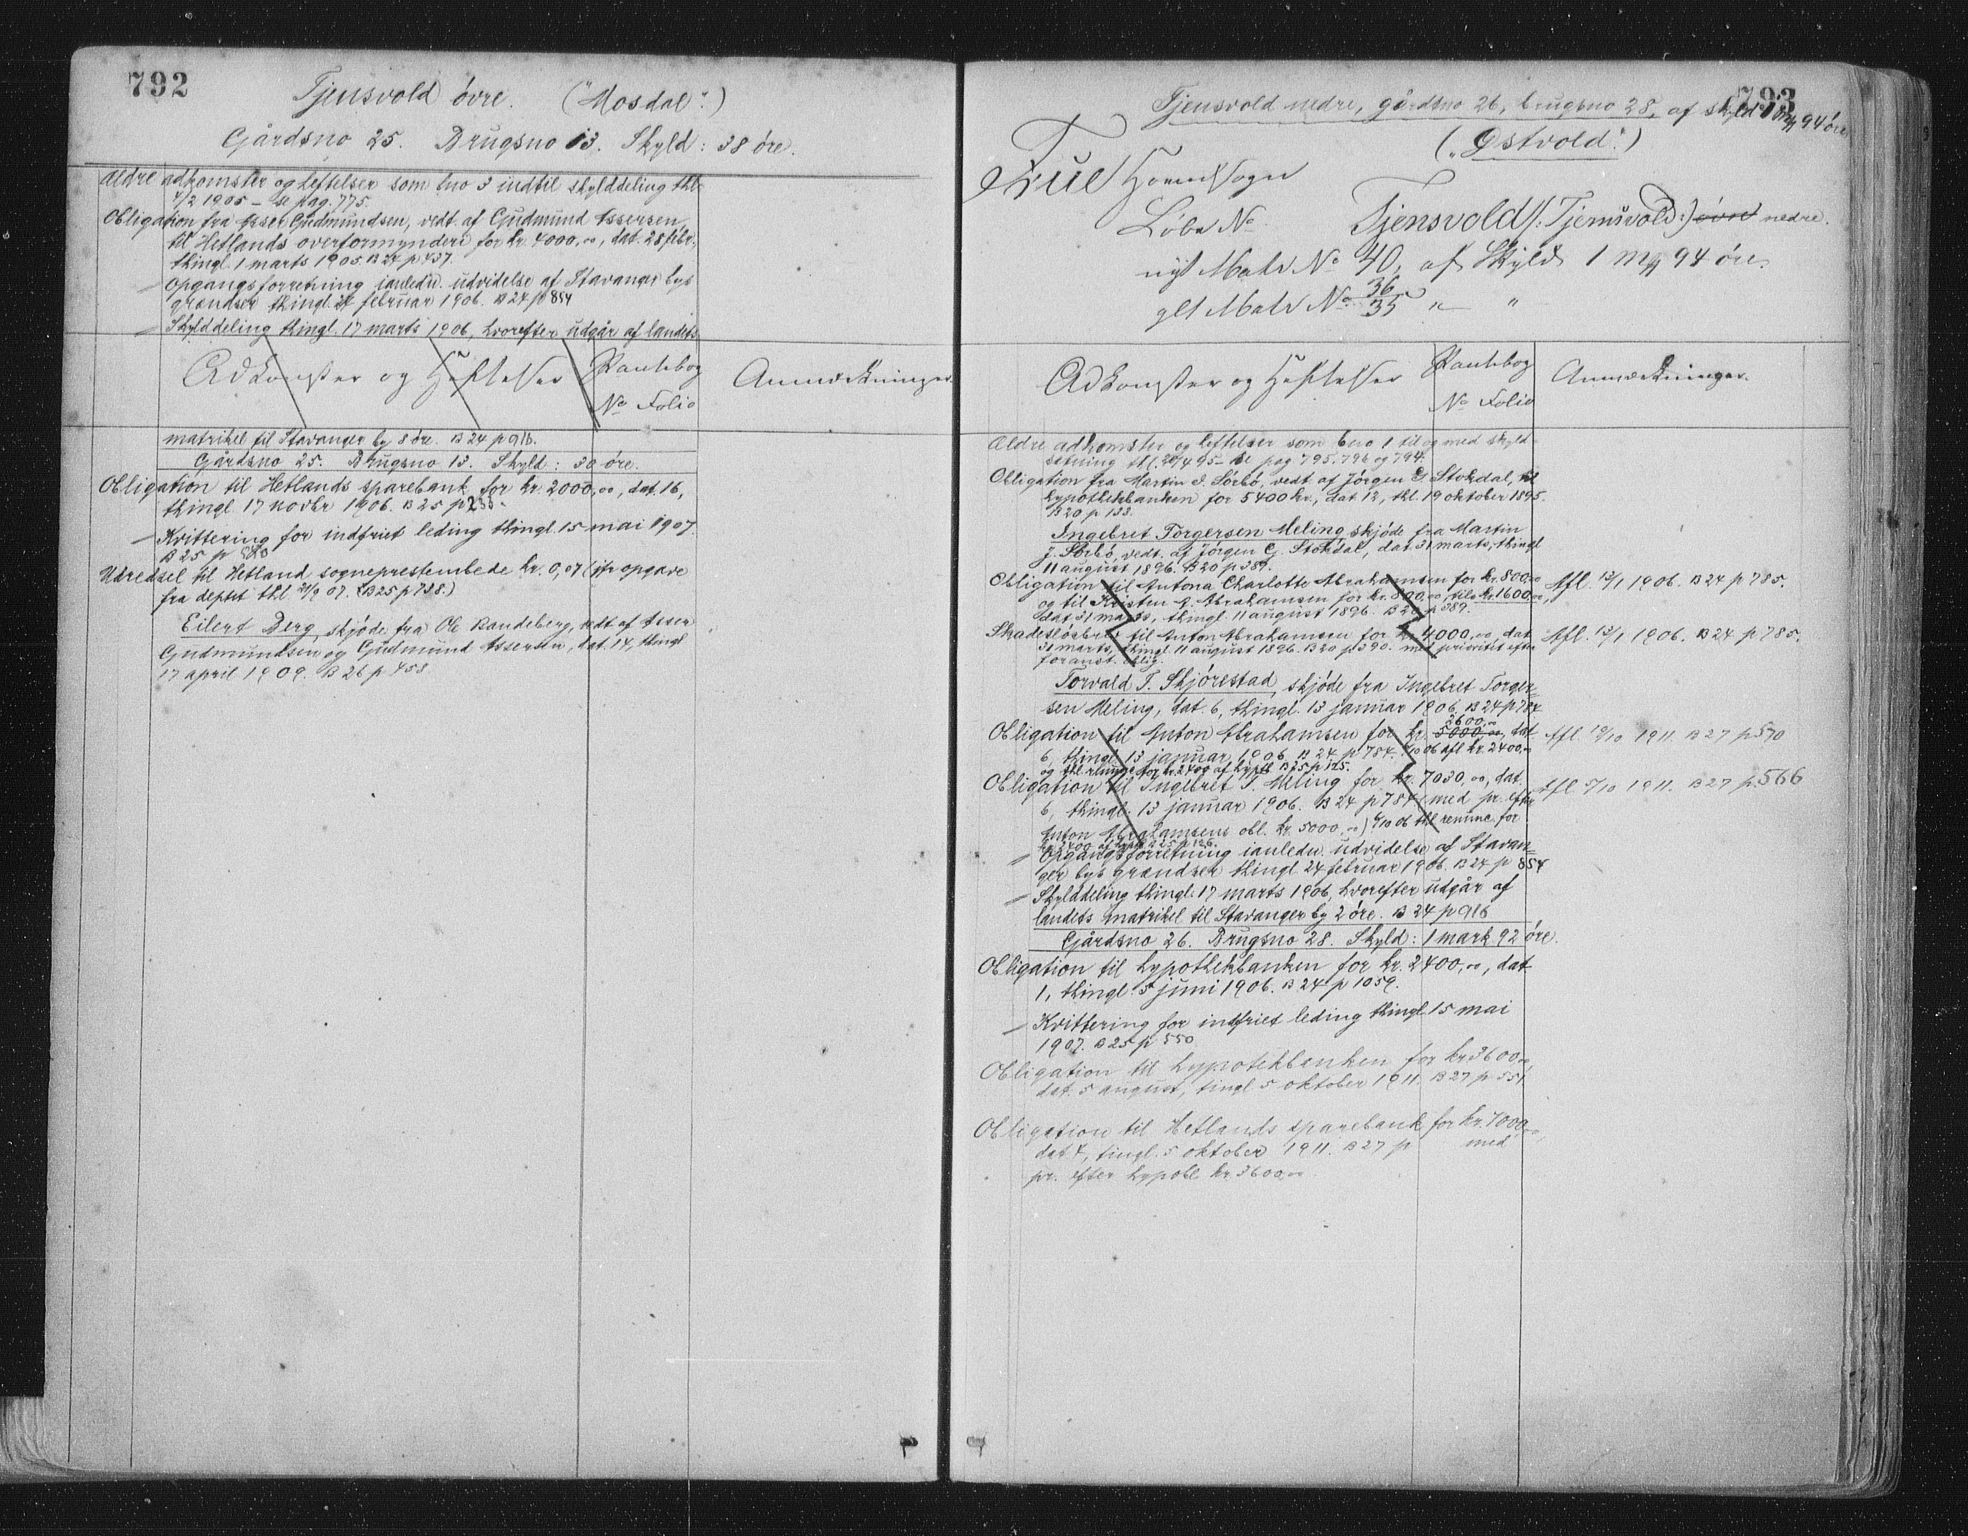 792
Tjensvold övre. ("Mosdal".)
Gårdsno 25. Brugsno 13. Skyld: 38 öre.
Ældre adkomster og heftelser som bno 3 indtil skylddeling thl.
4/2 1905 – se pag. 775.
Obligation fra Asser Gudmundsen, vedt. af Gudmund Assersen
til Hetlands overformynderi for kr. 4000,00, dat. 28 febr.
thingl. 1 marts 1905. B 24 p 437.
– Opgangsforretning ianledn. udvidelse af Stavanger bys
grændser thingl. 24 februar 1906. B 24 p 854
– Skylddeling thingl. 17 marts 1906, hvorefter udgår af landets
Adkomster og Heftelser
Pantebog
No Folio
Anmærkninger.
matrikel til Stavanger by 8 öre. B 24 p 916.
Gårdsno 25. Brugsno 13. Skyld: 30 öre.
Obligation til Hetlands sparebank for kr. 2000,00, dat. 16,
thingl. 17 novbr 1906. B 25 p 233.
– Kvittering for indfriet leding thingl. 15 mai 1907.
B 25 p 580
Udredsel til Hetland sogneprestembede kr. 0,07 (jfr opgave
fra deptet thl 21/9 07. (B 25 p 738.)
Eilert Berg, skjöde fra Ole Randeberg, vedt. af Asser
Gudmundsen og Gudmund Assersen, dat. 14, thingl
17 april 1909. B 26 p 453
793
Tjensvold nedre, gårdsno 26, brugsno 28, af skyld 1 mk 94 öre
("Østvold".)
Frue Hovedsogn
Løbe No Tjensvold (: Tjemsvold :) övre nedre.
nyt Matr No 40, af Skyld 1 mk 94 öre.
glt Matr No 36/35 " "
Adkomster og Heftelser
Pantebog
No Folio
Anmærkninger.
Ældre adkomster og heftelser som bno 1 til og med skyld-
sætning thl. 20/4 95 – se pag 795, 796 og 794.
Obligation fra Martin J. Sörbö, vedt. af Jörgen G. Stokdal, til
hypothekbanken for 5400 kr., dat 12, thl. 19 oktober 1895.
B 20 p 133.
Ingebret Torgersen Meling, skjöde fra Martin
J. Sörbö, vedt. af Jörgen G. Stokdal, dat 31 marts, thingl
11 august 1896. B 20 p 389.
Obligation til Antona Charlotte Abrahamsen for kr. 800,00
og til Kristen A. Abrahamsen for kr. 800,00, tils. kr. 1600,00,
dat 31 marts, thingl. 11 august 1896. B 20 p 389.
Afl. 13/1 1906. B 24 p 785.
Skadeslösbrev til Anton Abrahamsen for kr. 4000,00, dat
31 marts, thingl. 11 august 1896. B 20 p 390. med prioritet efter
foranst. oblig.
Afl. 13/1 1906. B 24 p 785.
Torvald T. Skjörestad, skjöde fra Ingebret Torger-
sen Meling, dat. 6, thingl. 13 januar 1906. B 24 p 784
2600,00
Obligation til Anton Abrahamsen for kr. 5000,00, dat
6, thingl. 13 januar 1906. B 24 p 784. 6/10 06 afl kr. 2400,00
Afl. 12/10 1911. B 27 p 570
Obligation til Ingebret T. Meling for kr. 7030,00, dat
6, thingl. 13 januar 1906. B 24 p 784 (med pr. efter
Anton Abrahamsens obl. kr. 5000,00) 6/10 06 thl renunc. for
Afl 5/10 1911. B 27 p 566
– Opgangsforretning ianledn. udvidelse af Stavan-
ger bys grændser thingl 24 februar 1906. B 24 p 854
– Skylddeling thingl. 17 marts 1906 hvorefter udgår af
landets matrikel til Stavanger by 2 öre. B 24 p 916
Gårdsno 26. Brugsno 28. Skyld: 1 mark 92 öre.
Obligation til hypothekbanken for kr. 2400,00, dat
1, thingl. 5 juni 1906. B 24 p 1059.
– Kvittering for indfriet leding thingl 15 mai
1907. B 25 p 550
Obligation til hypotekbanken for kr 3600,00
dat. 5 august, tingl. 5 oktober 1911. B 27 p 551.
Obligation til Hetlands sparebank for kr. 7000,00,
dat 4, tingl. 5 oktober 1911. B 27 p med
pr. efter hypobl kr. 3600,00